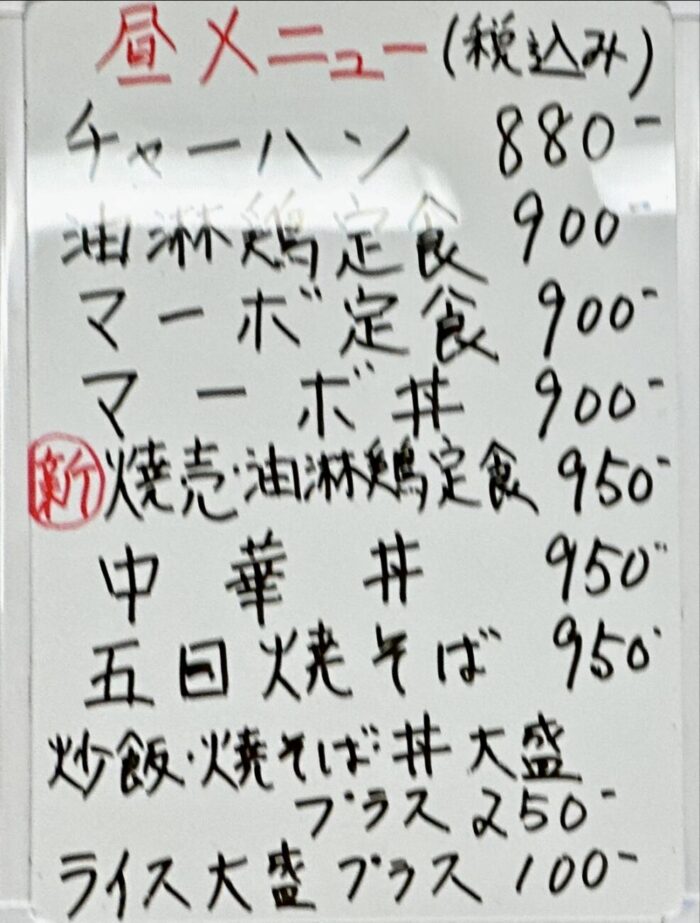 昼メニュー(税込み)
チャーハン 880-
油淋鶏定食 900-
マーボ定食 900-
マーボ丼 900-
新 焼売・油淋鶏定食 950-
中華丼 950-
五目焼そば 950-
炒飯・焼そば・丼大盛
プラス250-
ライス大盛プラス100-